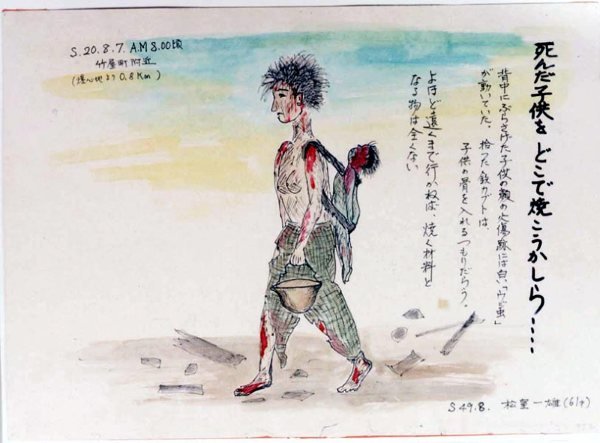 死んだ子供を どこで焼こうかしら……
背中にぶらさげた子供の顔の火傷跡には白い「ウジ虫」
が動いていた。拾った鉄カブトは、
子供の骨を入れるつもりだらう。
よほど遠くまで行かねば、焼く材料と
なる物は全くない
S.20.8.7. A.M 8.00頃
竹屋町附近
(爆心地より 0.8Km)
S.49.8. 松室一雄(61才)